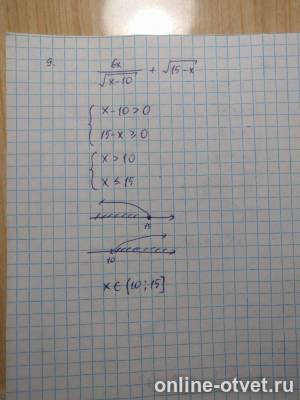 9. 6x/√(x-10) + √(15-x)
{ x-10>0
15-x≥0
{ x>10
x≤15
15
10
x∈(10;15]
online-otvet.ru